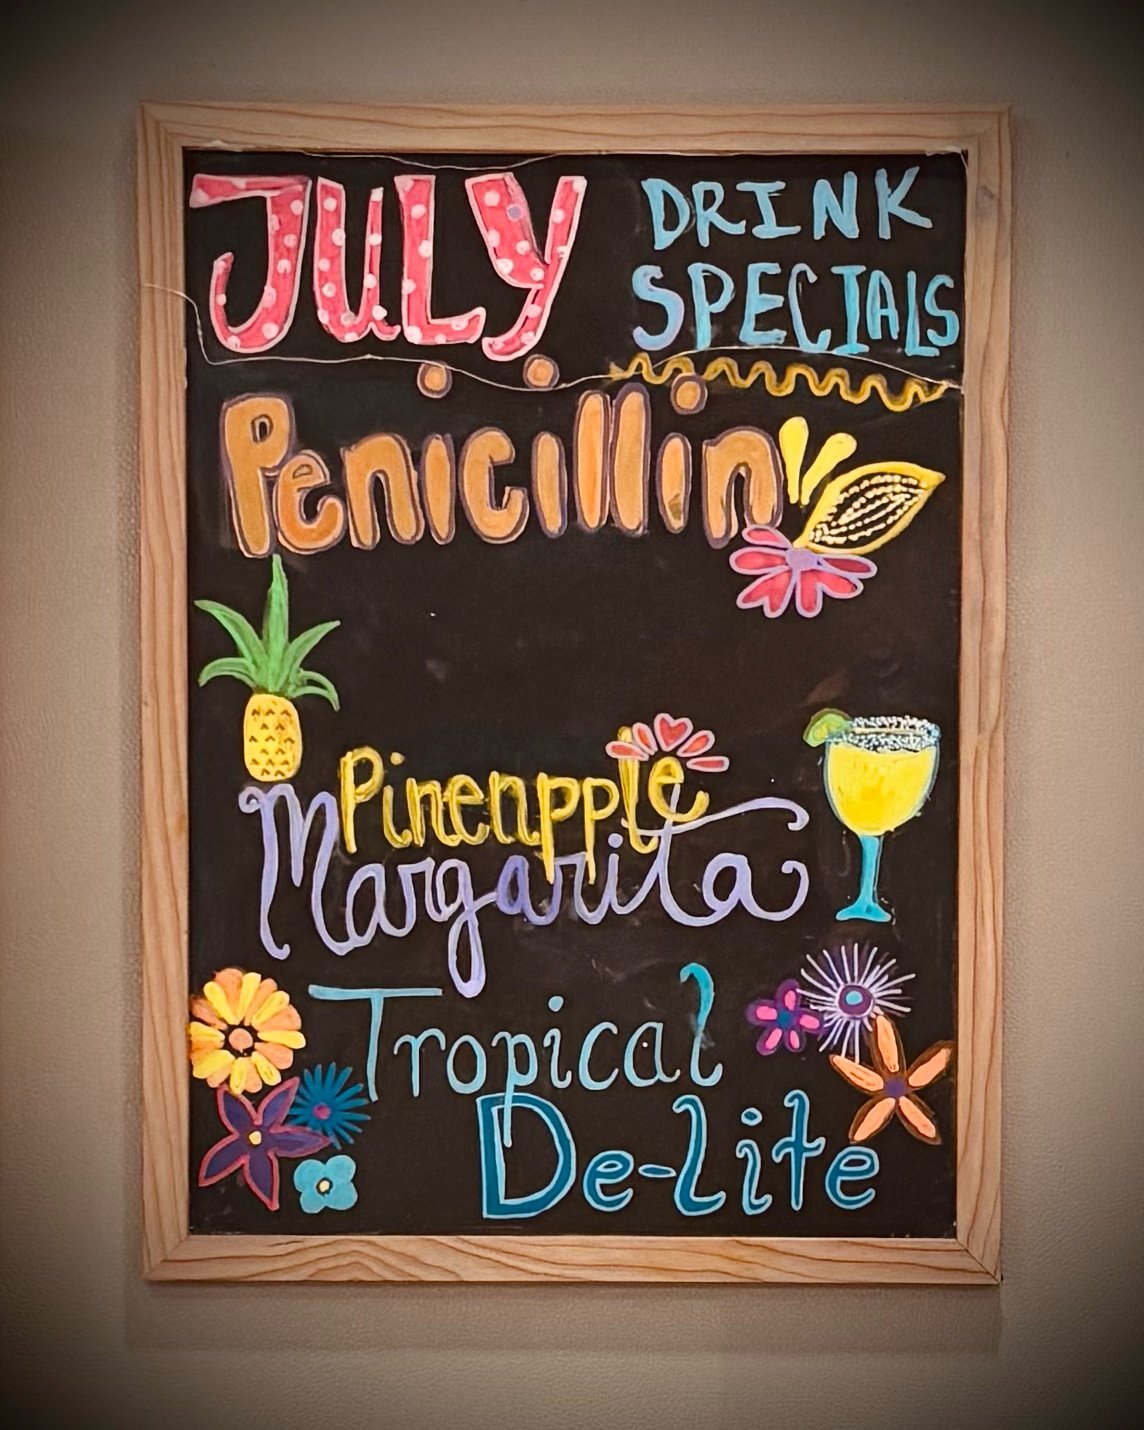 JULY
DRINK
SPECIALS
Penicillin
Pinenpple
Margarita
Tropical
De-Lite